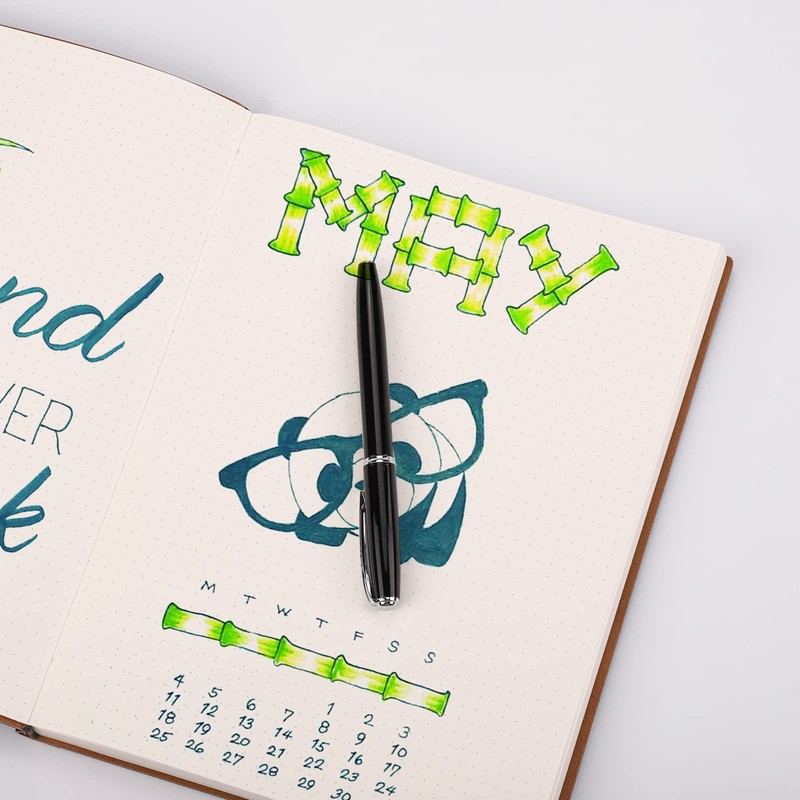 nd
VER
k
MAY
M T W T F S S
1 2 3
4 5 6 7 8 9 10
11 12 13 14 15 16 17
18 19 20 21 22 23 24
25 26 27 28 29 30